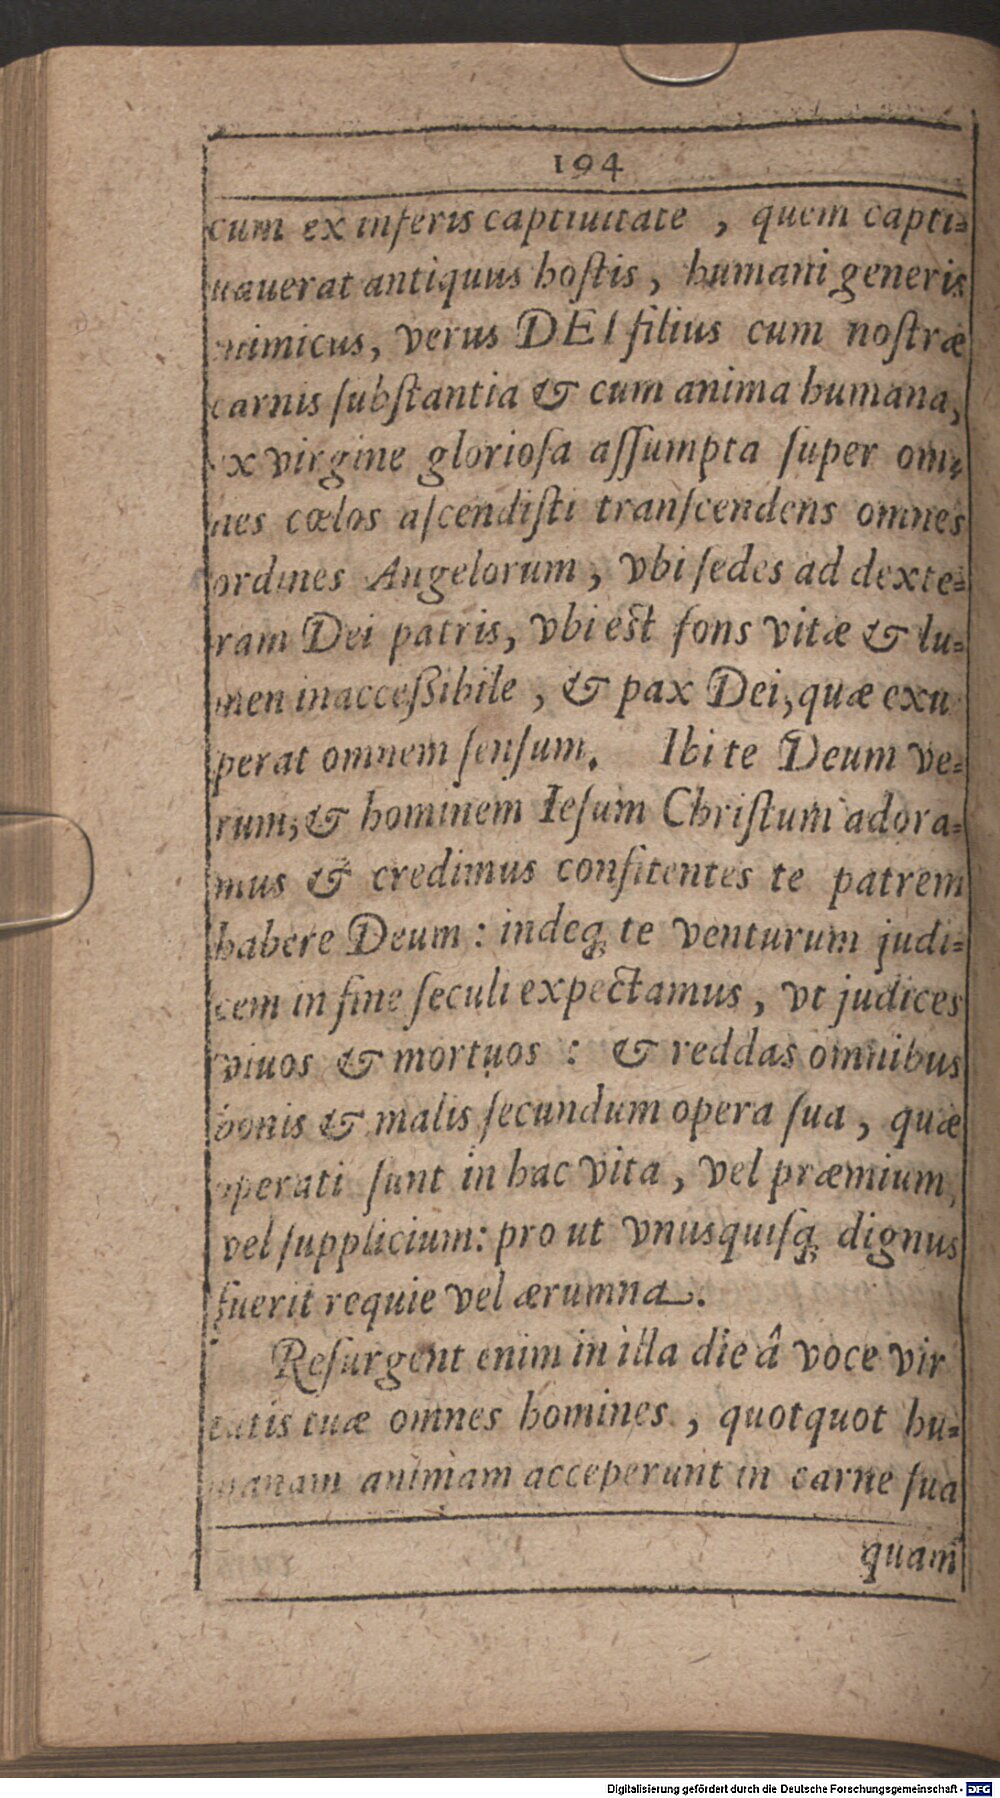 194
cum ex inferis captiuitate , quem capti-
uauerat antiquus hoſtis , humani generis
inimicus, verus DEI filius cum noſtræ
carnis ſubſtantia & cum anima humana,
ex virgine glorioſa aſſumpta ſuper om-
nes cœlos aſcendiſti tranſcendens omnes
ordines Angelorum , vbi ſedes ad dexte-
ram Dei patris, vbi est fons vitæ & lu-
men inacceßibile , & pax Dei, quæ exu
perat omnem ſenſum. Ibi te Deum ve-
rum, & hominem Ieſum Chriſtum adora-
mus & credimus confitentes te patrem
habere Deum : indeq; te venturum judi-
cem in fine ſeculi expectamus , vt judices
viuos & mortuos : & reddas omnibus
bonis & malis ſecundum opera ſua , quæ
operati ſunt in hac vita , vel præmium,
vel ſupplicium: pro ut vnusquiſq; dignus
fuerit requie vel ærumna.
Reſurgent enim in illa die â voce vir
tutis tuæ omnes homines , quotquot hu-
manam animam acceperunt in carne ſua
quam
Digitalisierung gefördert durch die Deutsche Forschungsgemeinschaft - DFG